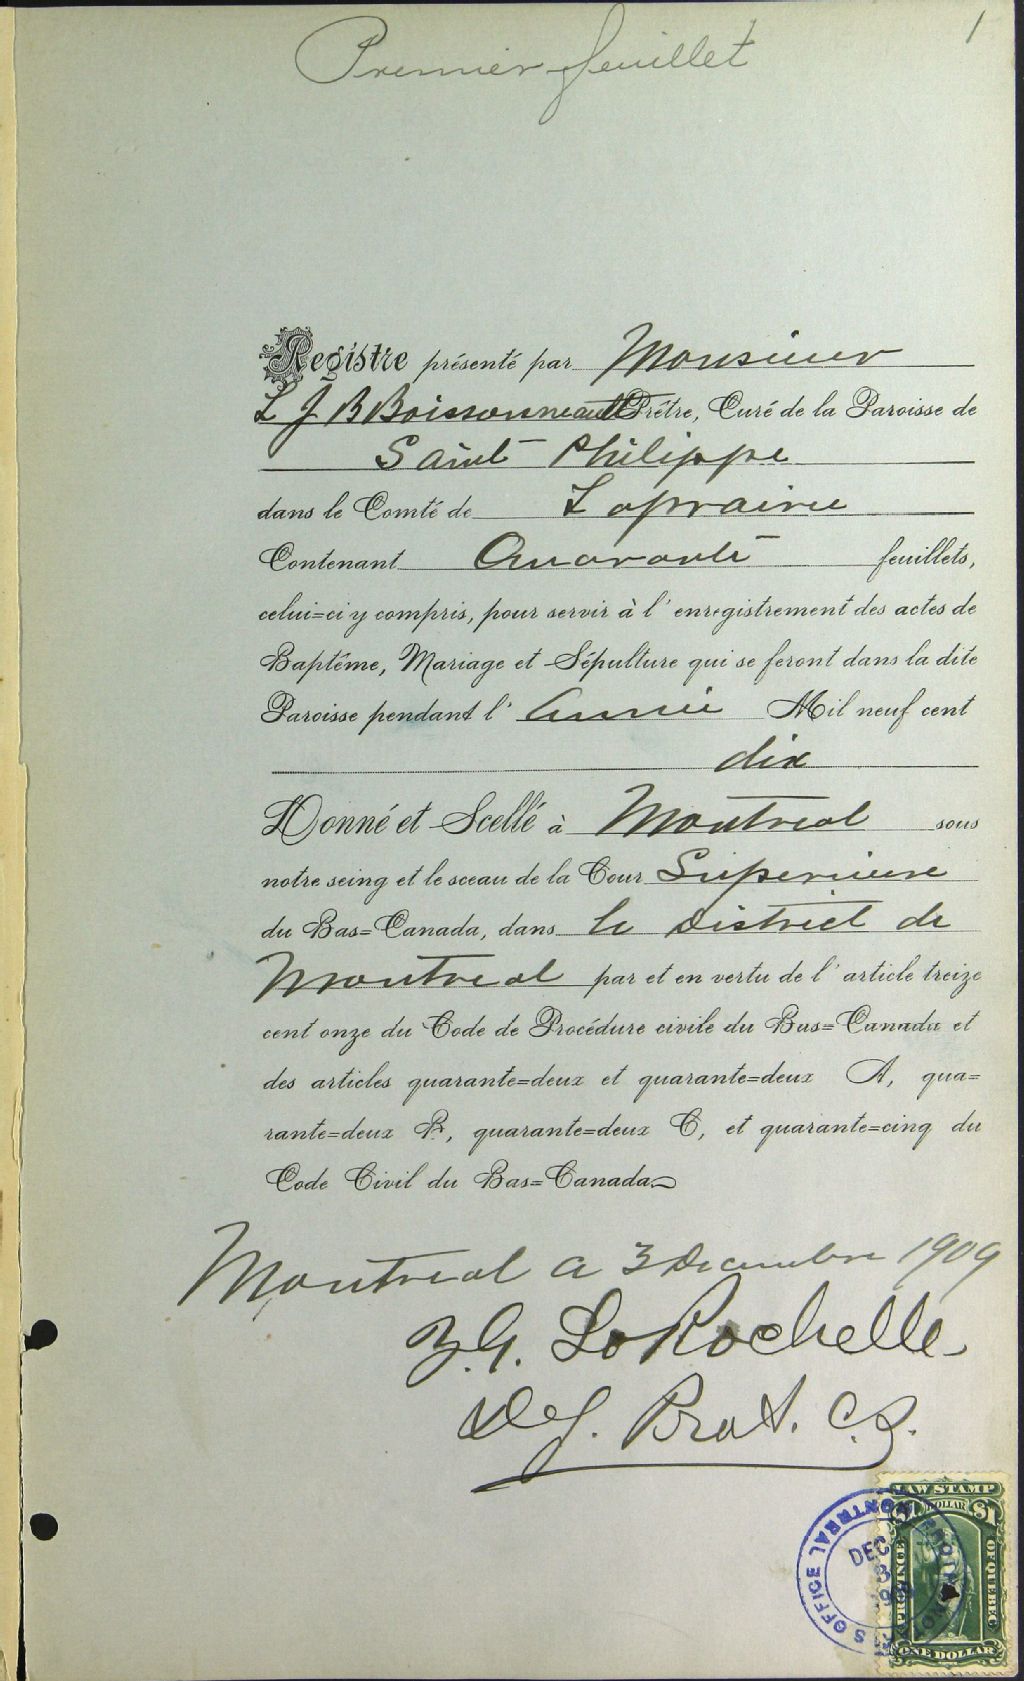 1
Premier feuillet
Registre présenté par Monsieur
L J B Boissonneault Prêtre, Curé de la Paroisse de
Saint Philippe
dans le Comté de Laprairie
Contenant Quarante feuillets,
celui=ci y compris, pour servir à l'enregistrement des actes de
Baptême, Mariage et Sépulture qui se feront dans la dite
Paroisse pendant l'Année Mil neuf cent
dix
Donné et Scellé à Montreal sous
notre seing et le sceau de la Cour Superieure
du Bas=Canada, dans le District de
Montreal par et en vertu de l'article treize
cent onze du Code de Procédure civile du Bas=Canada et
des articles quarante=deux et quarante=deux A, qua=
rante=deux B, quarante=deux C, et quarante=cinq du
Code Civil du Bas=Canada
Montreal a 3 Decembre 1909
Z.G. LaRochelle
Dep. Prot. C.S.
LAW STAMP
$1 DOLLAR $1
PROVINCE OF QUEBEC
ONE DOLLAR
OFFICE MONTREAL
DEC
3